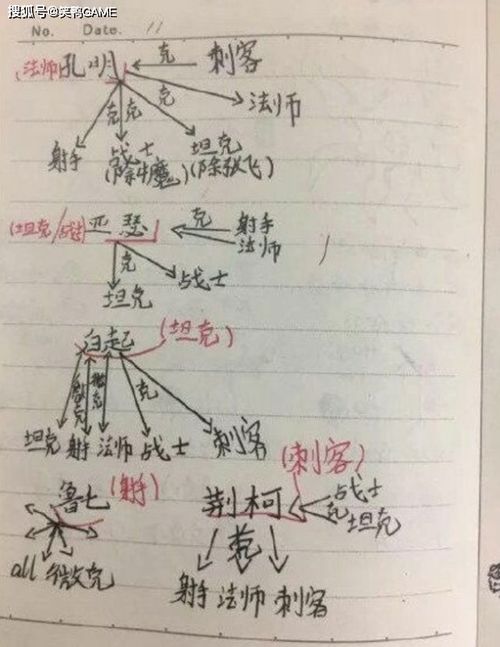 搜狐号@笑鸭GAME
No. Date. 11
(法师)孔明 克 刺客
克 克 克 法师
射手 战士 坦克
(除牛魔) (除张飞)
(坦克/战士)亚瑟 克 射手
法师
克
坦克 战士
白起 (坦克)
微克 克
坦克 射手 法师 战士 刺客
鲁七 (射手) (刺客)
荆柯 战士
克 坦克
克
all 微克
射手 法师 刺客